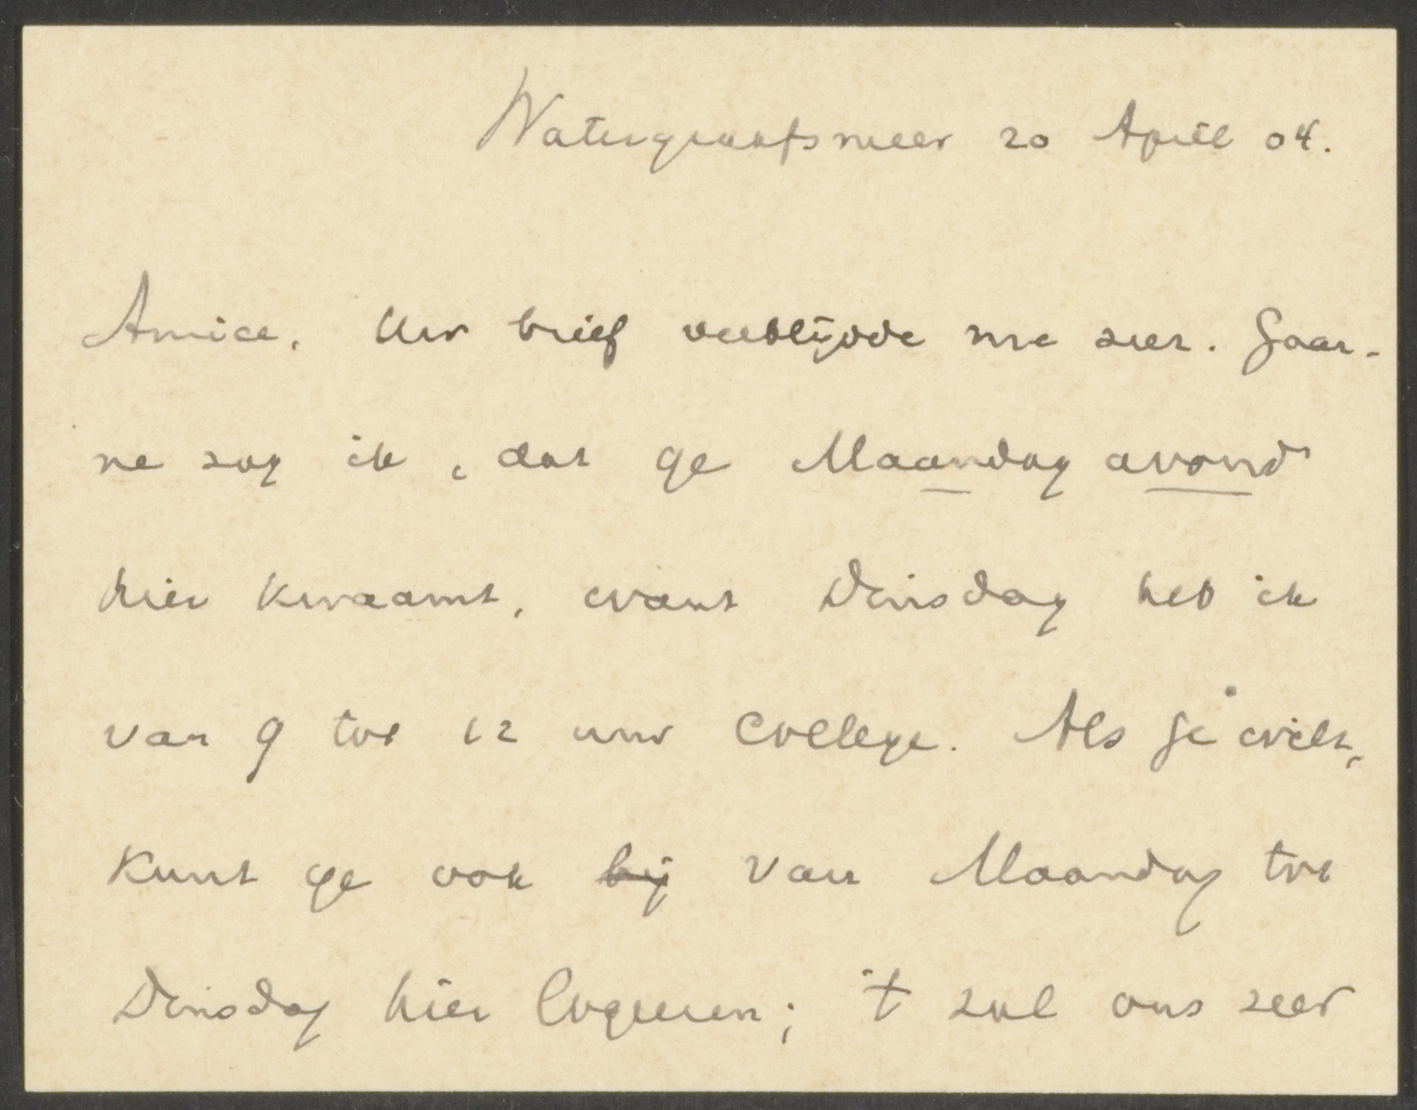 Watergraafsmeer 20 April 04.
Amice. Uw brief verblijdde me zeer. Gaar-
ne zag ik, dat ge Maandag avond
hier kwaamt, want Dinsdag heb ik
van 9 tot 12 uur College. Als ge wilt,
kunt ge ook bij van Maandag tot
Dinsdag hier logeeren; 't zal ons zeer